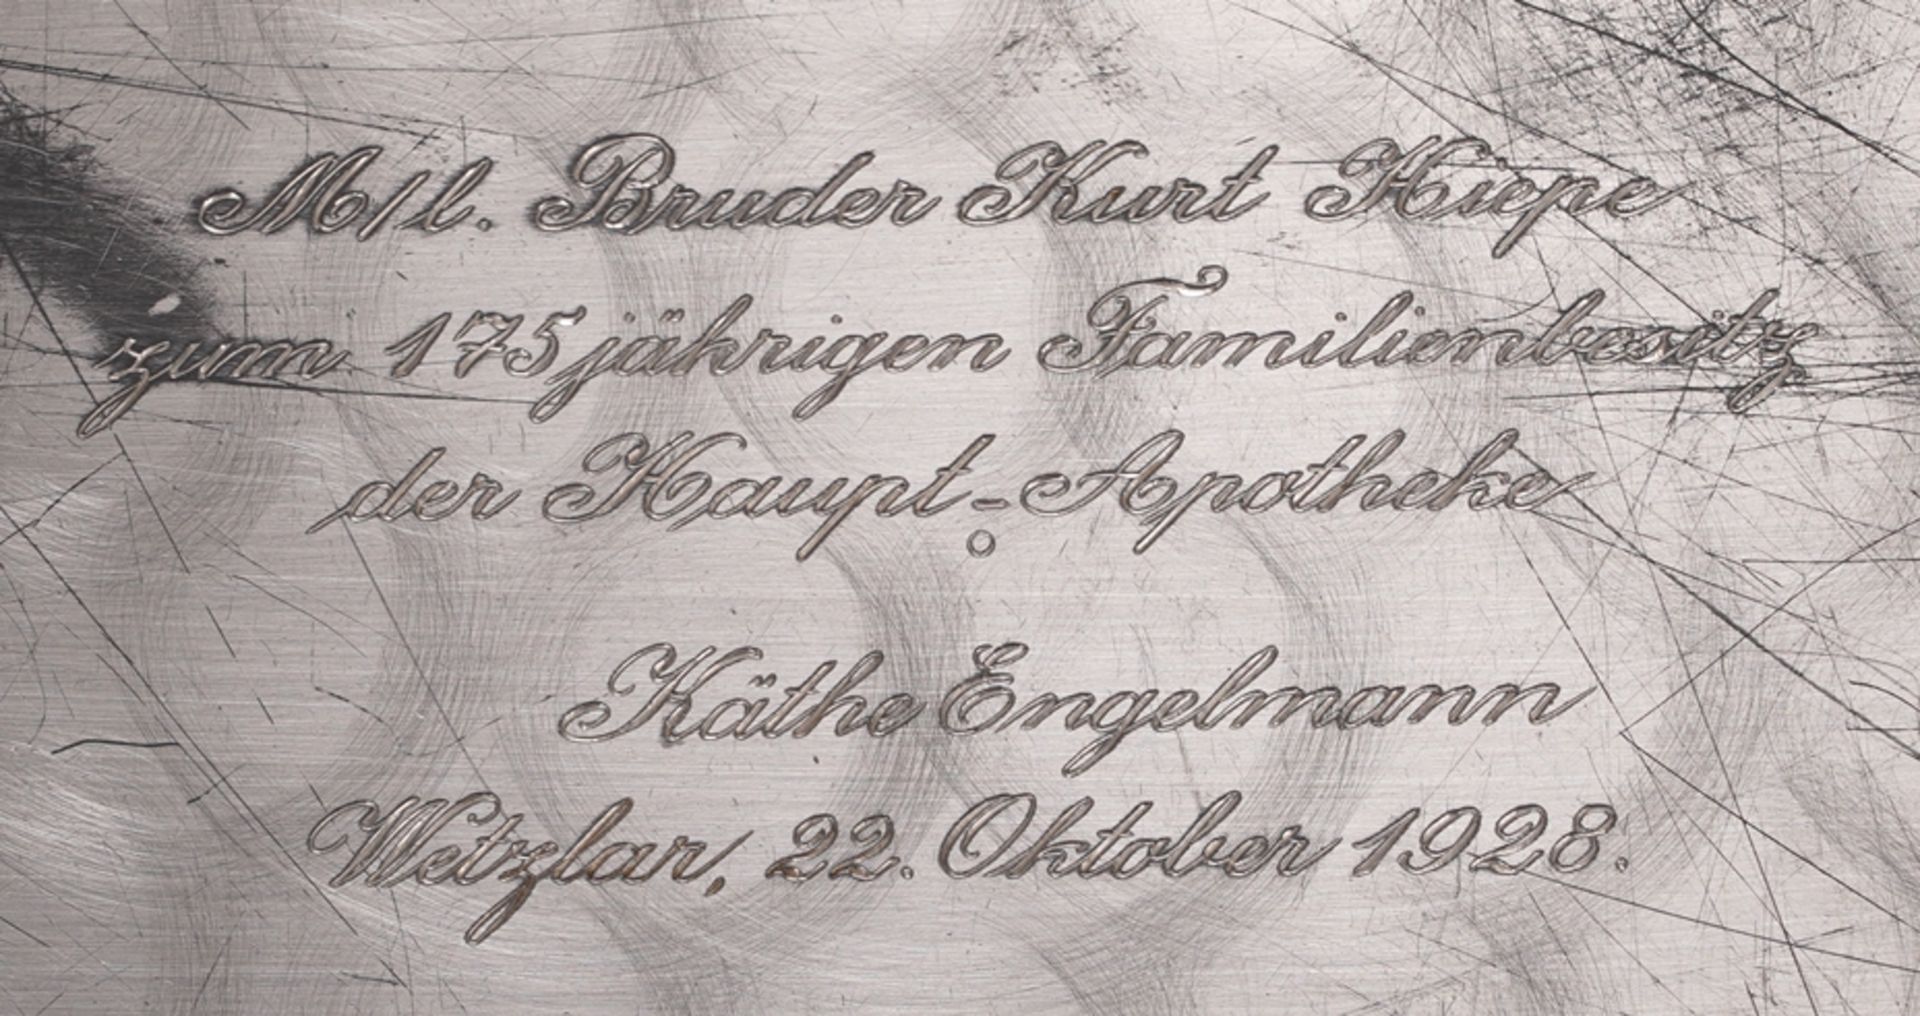 M/l. Bruder Kurt Hiepe
zum 175jährigen Familienbesitz
der Haupt-Apotheke
Käthe Engelmann
Wetzlar, 22. Oktober 1928.